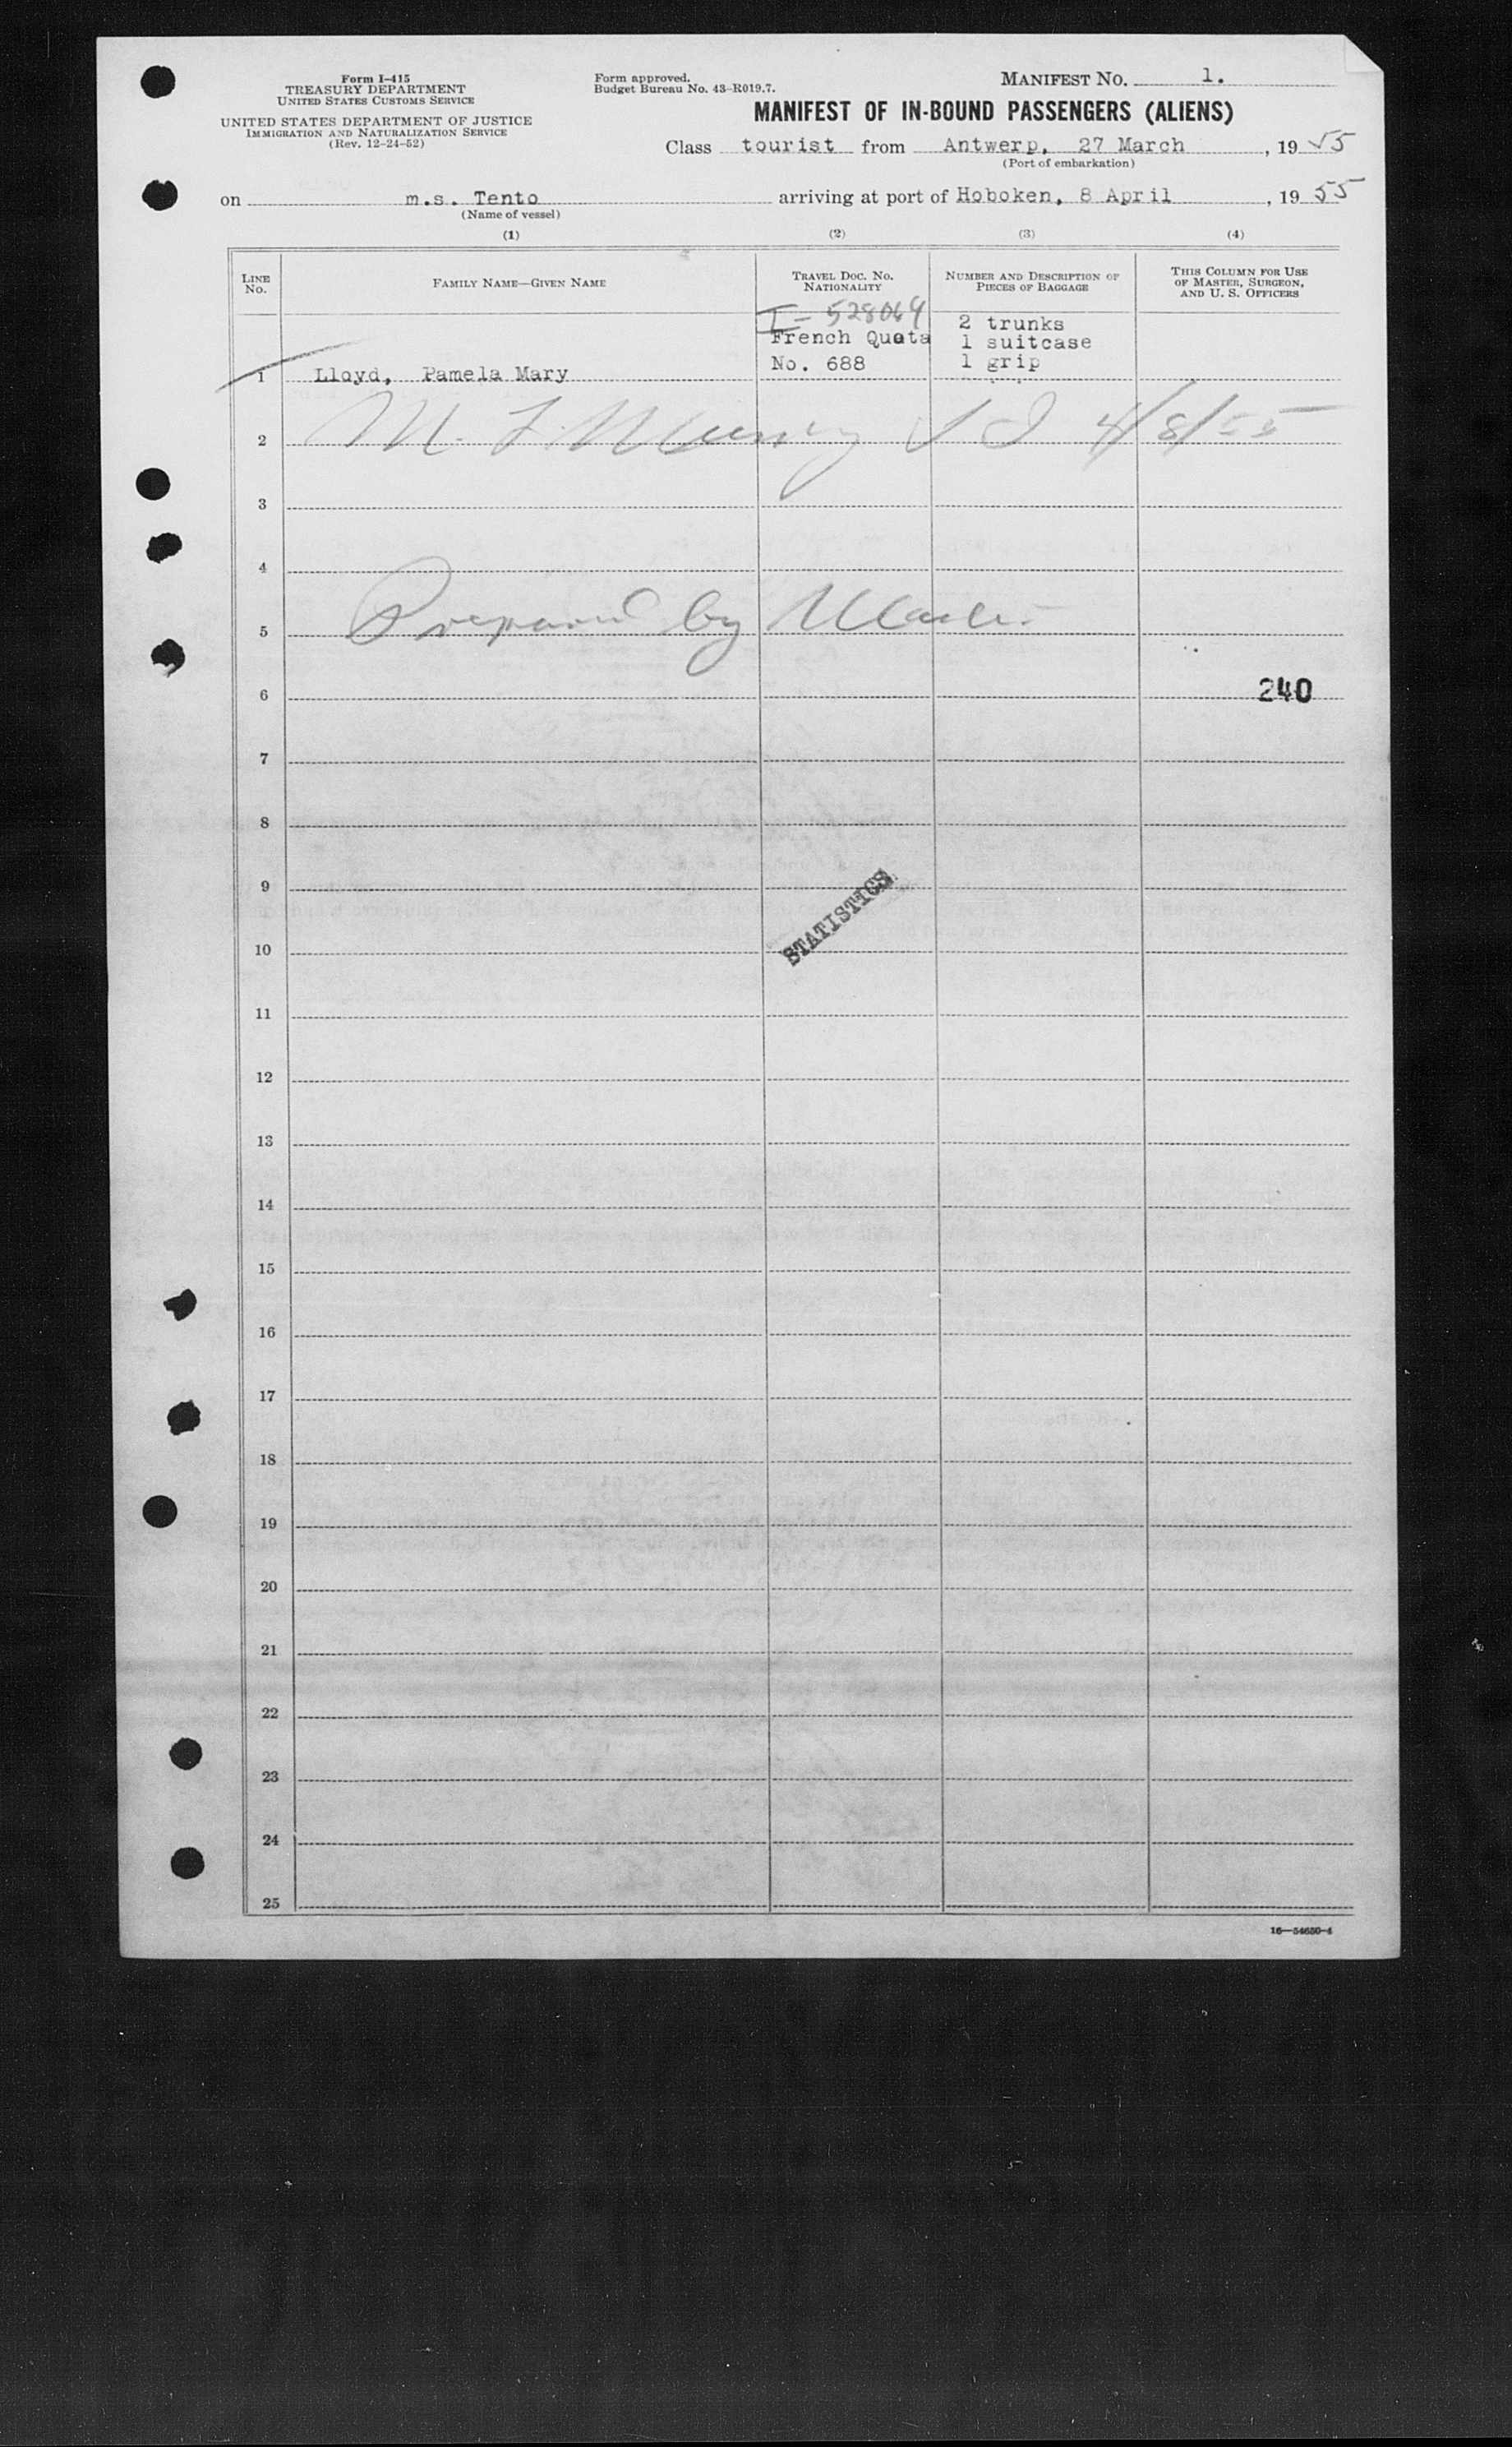 Form I-415
TREASURY DEPARTMENT
UNITED STATES CUSTOMS SERVICE
UNITED STATES DEPARTMENT OF JUSTICE
IMMIGRATION AND NATURALIZATION SERVICE
(Rev. 12-24-52)
Form approved.
Budget Bureau No. 43-R019.7.
MANIFEST NO. 1.
MANIFEST OF IN-BOUND PASSENGERS (ALIENS)
Class tourist from Antwerp, 27 March, 19 55
(Port of embarkation)
on m.s. Tento arriving at port of Hoboken, 8 April, 19 55
(Name of vessel)
(1) (2) (3) (4)
LINE NO. FAMILY NAME—GIVEN NAME TRAVEL DOC. NO. NATIONALITY NUMBER AND DESCRIPTION OF PIECES OF BAGGAGE THIS COLUMN FOR USE OF MASTER, SURGEON, AND U. S. OFFICERS
I-528064
French Quota
No. 688
2 trunks
1 suitcase
1 grip
1 Lloyd, Pamela Mary
2 M. 4/8/55
3
4
5 Prepared by
6 240
7
8
9
STATISTICS
10
11
12
13
14
15
16
17
18
19
20
21
22
23
24
25
16—54650-4